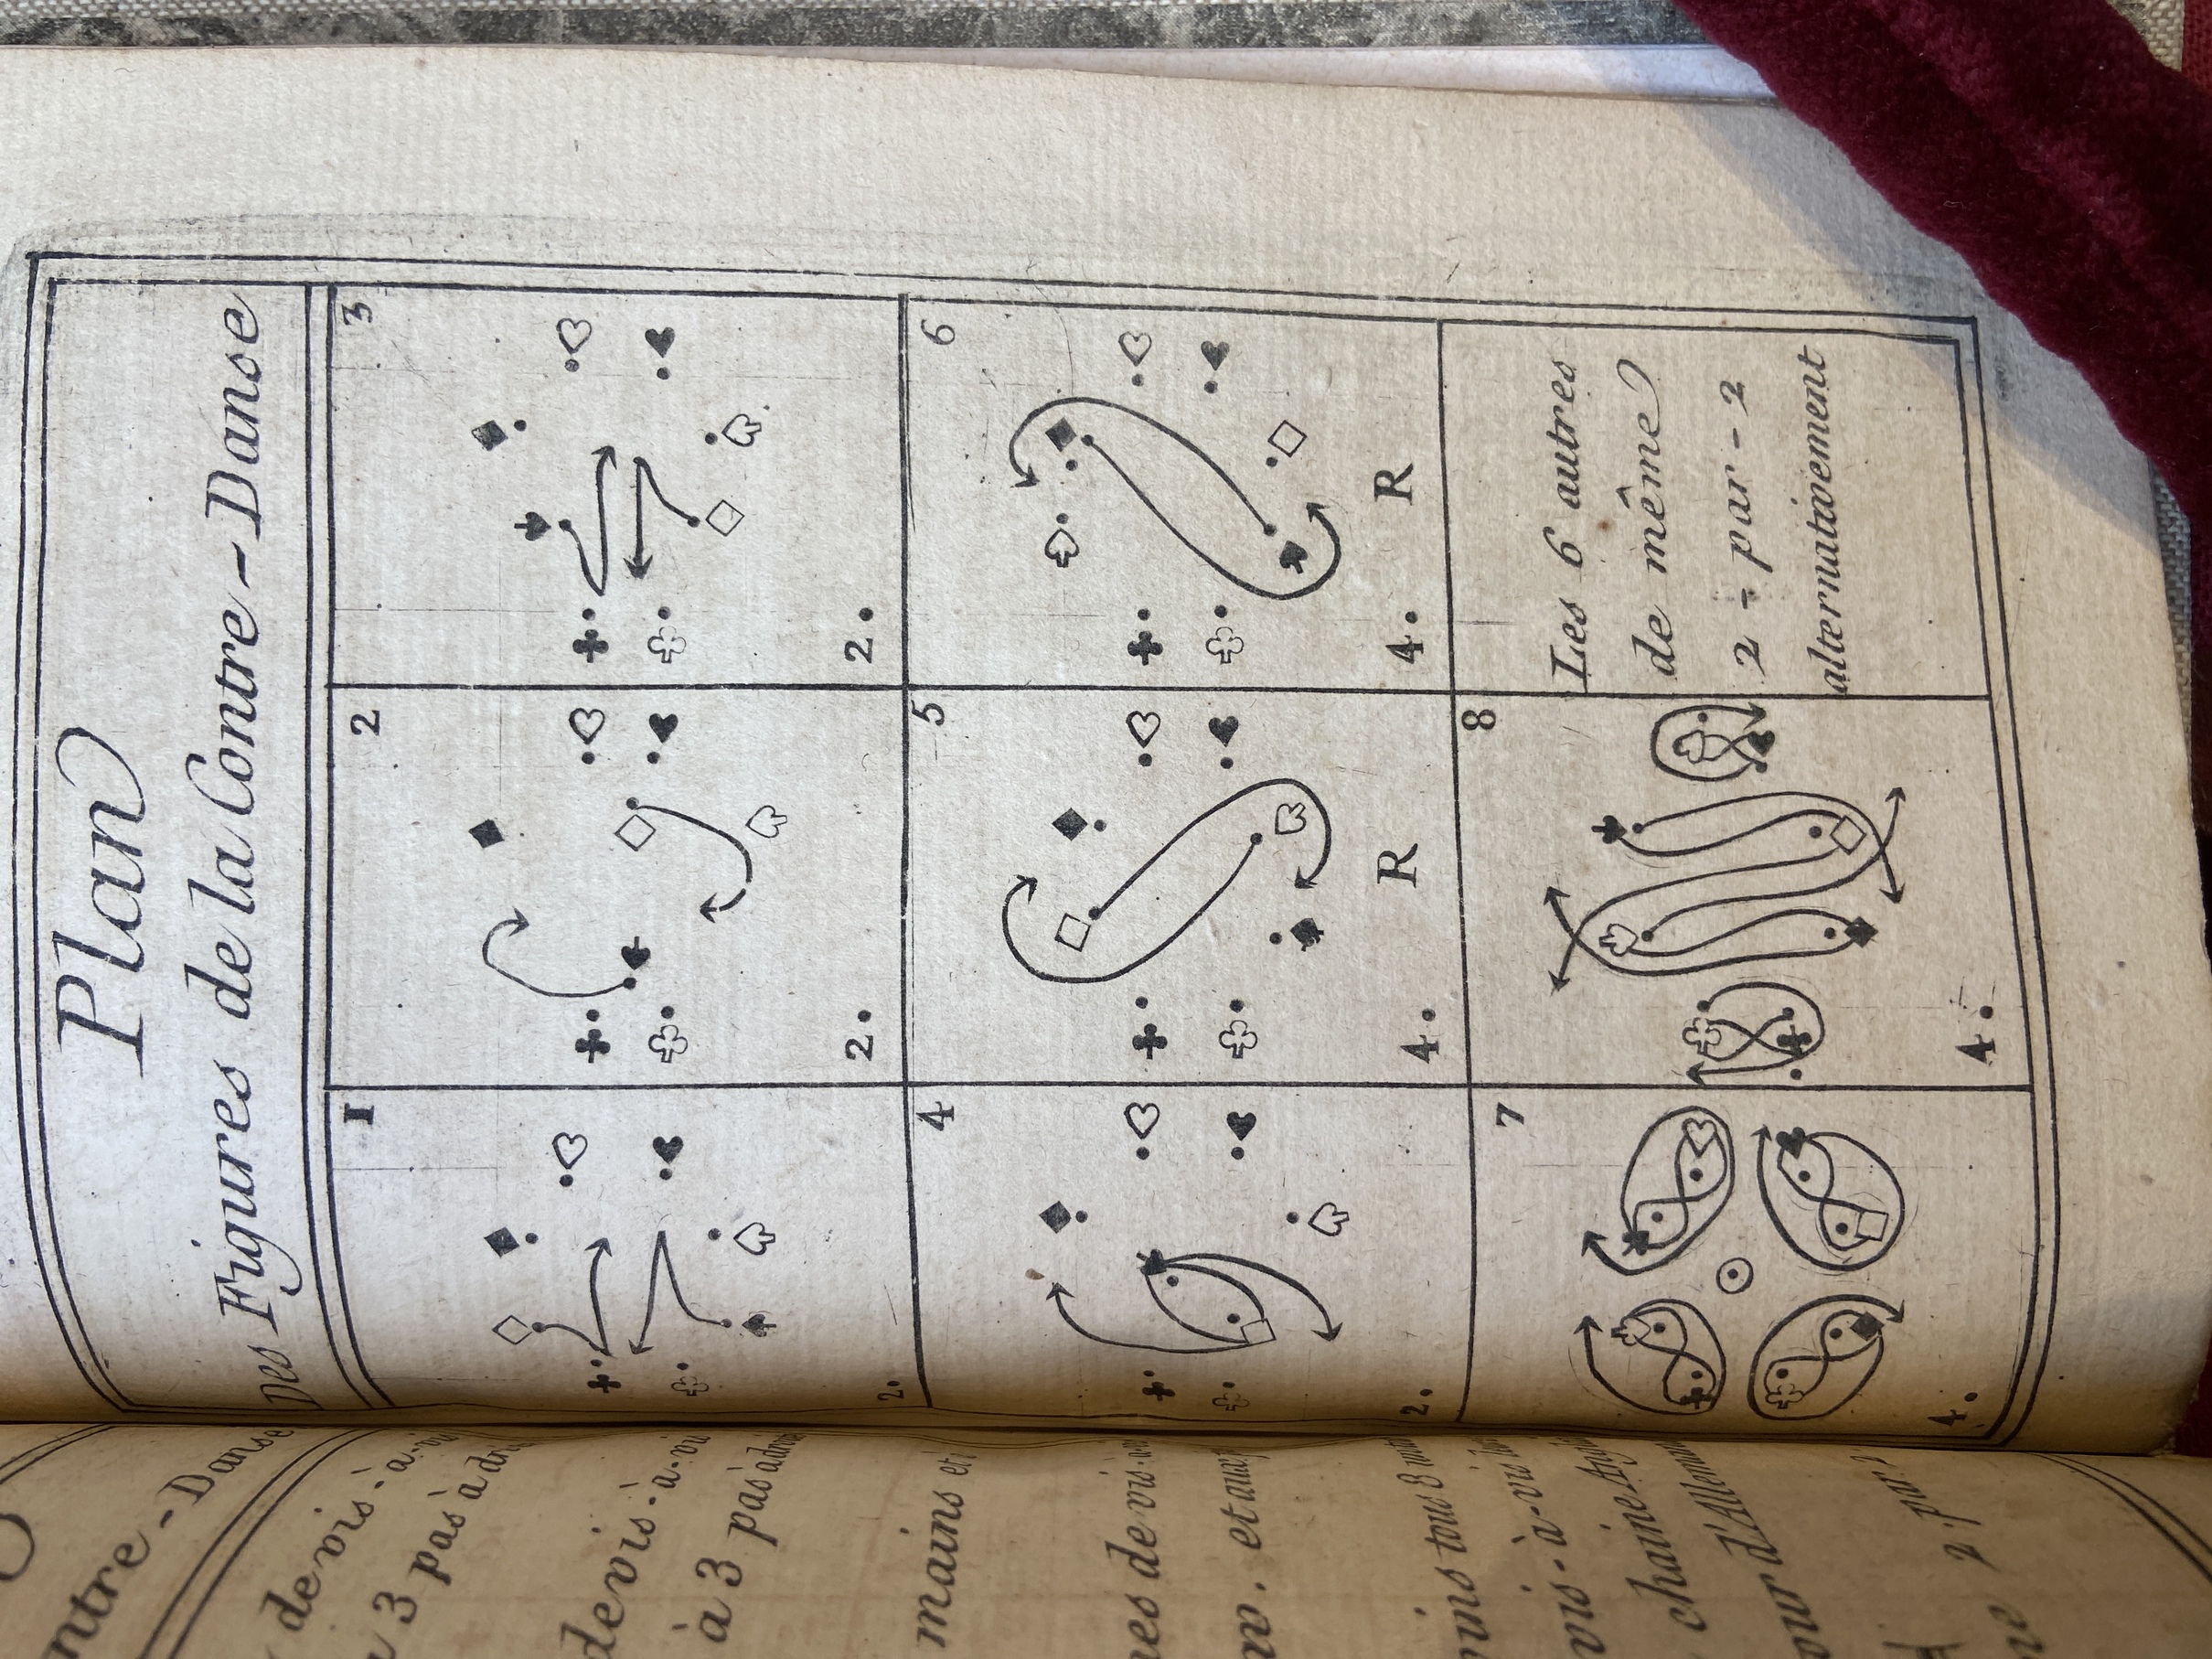 Plan
Des Figures de la Contre-Danse
1
2.
2
2.
3
2.
4
2.
5
4. R
6
4. R
7
4.
8
4.
Les 6 autres
de même
2 - par - 2
alternativement
ntre-Danse
de vis-à-vis
à 3 pas à
de vis-à-vis
à 3 pas à
mains et
de vis-à
et aux
tous 8
vis-à-vis
chaine
d'Allemand
2 par 2